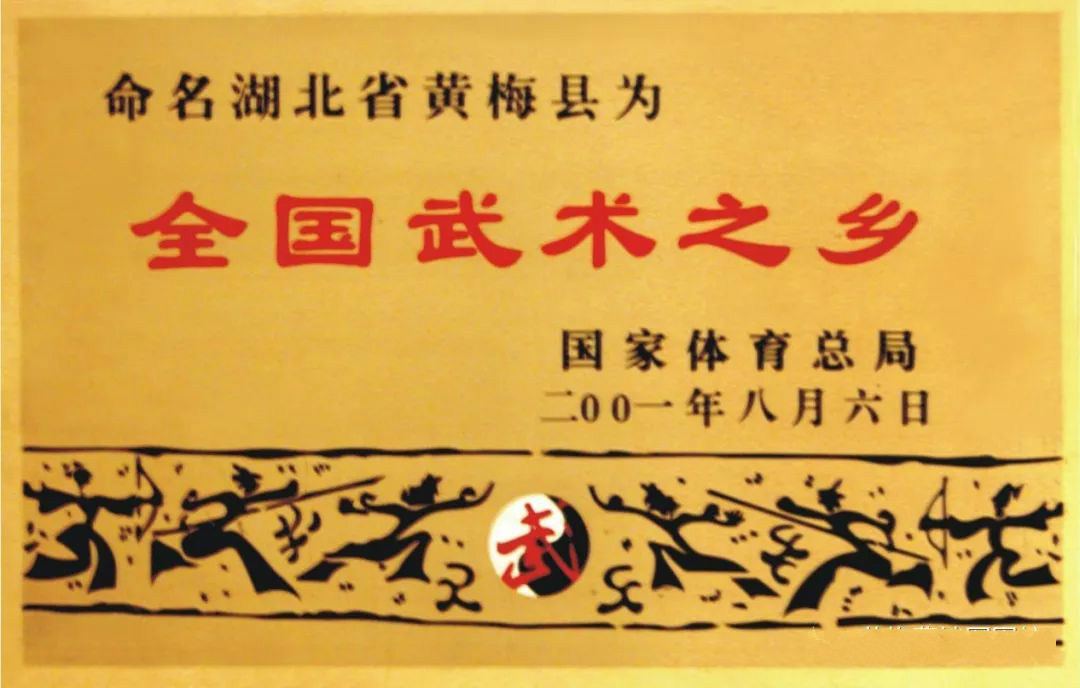 命名湖北省黄梅县为
全国武术之乡
国家体育总局
二00一年八月六日
武